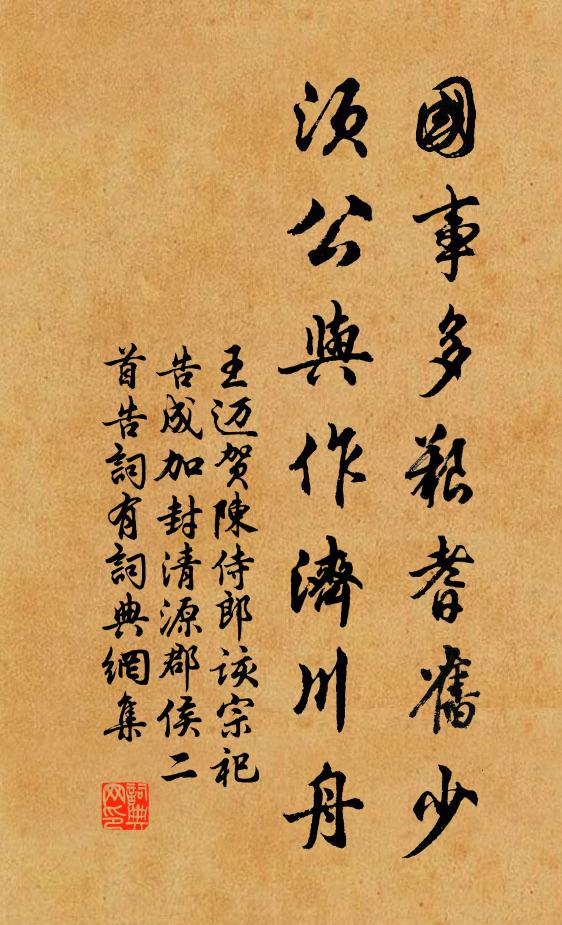 國事多艱耆舊少
須公與作濟川舟
王迈贺陳侍郎该宗祀
告成加封清源郡侯二
首告詞有詞典網集
詞典网印